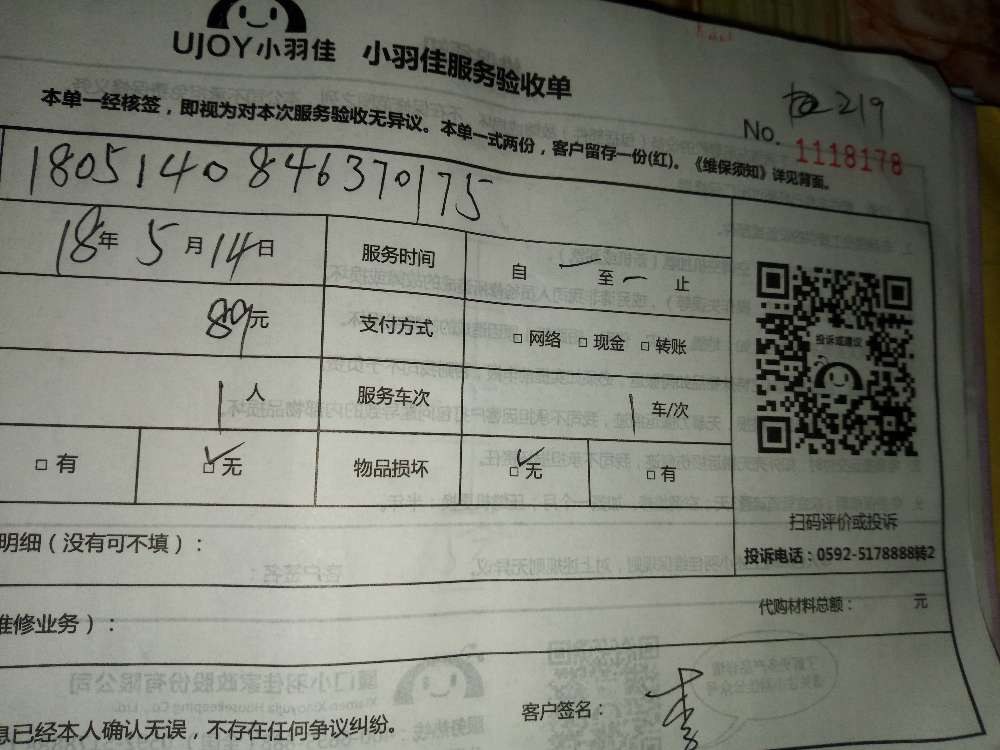 UJOY小羽佳 小羽佳服务验收单
219
本单一经核签，即视为对本次服务验收无异议。本单一式两份，客户留存一份(红)。《维保须知》详见背面。
No. 1118178
1805140846370175
18年 5月 14日 服务时间 自 至 止
89元 支付方式 □ 网络 □ 现金 □ 转账
1人 服务车次 1车/次
□ 有 ☑ 无 物品损坏 ☑ 无 □ 有
投诉或建议
扫码评价或投诉
投诉电话：0592-5178888转2
明细（没有可不填）：
代购材料总额： 元
维修业务）：
客户签名：李
息已经本人确认无误，不存在任何争议纠纷。